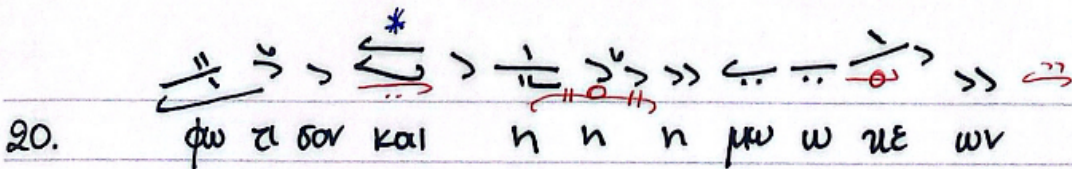 20. φω τι σον και η η η μω ω ων